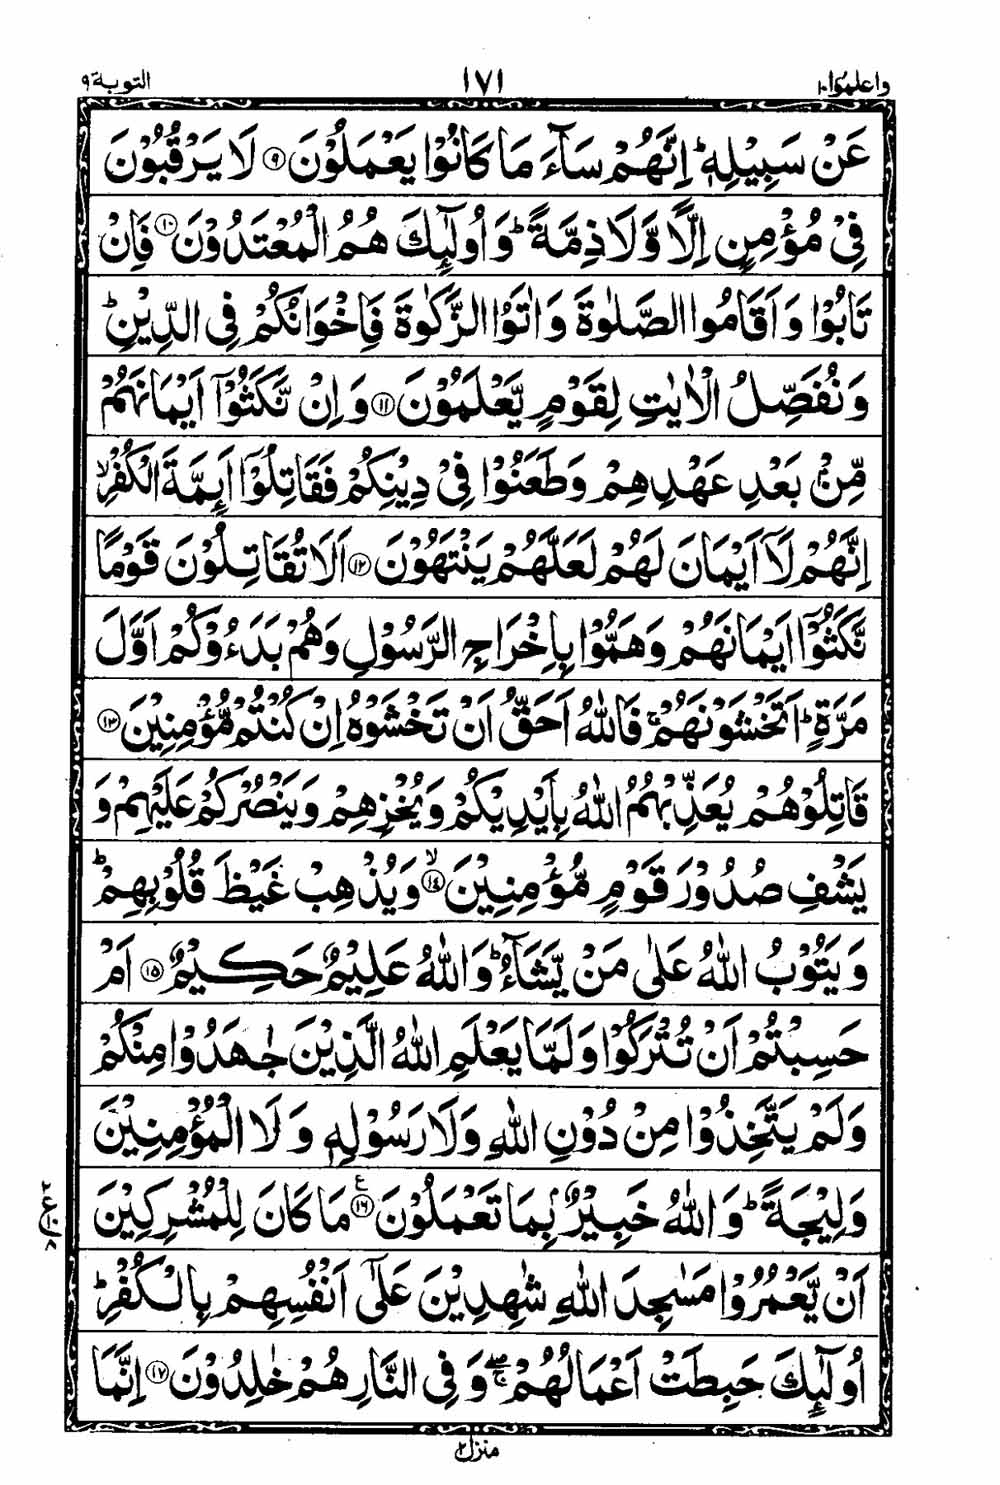 واعلموا ١٠ ١٧١ التوبة ٩
عَنْ سَبِيْلِهٖ ؕ اِنَّهُمْ سَآءَ مَا كَانُوْا يَعْمَلُوْنَ ۹ لَا يَرْقُبُوْنَ
فِيْ مُؤْمِنٍ اِلًّا وَّلَا ذِمَّةً ؕ وَاُولٰٓئِكَ هُمُ الْمُعْتَدُوْنَ ۱۰ فَاِنْ
تَابُوْا وَاَقَامُوا الصَّلٰوةَ وَاٰتَوُا الزَّكٰوةَ فَاِخْوَانُكُمْ فِي الدِّيْنِ ؕ
وَنُفَصِّلُ الْاٰيٰتِ لِقَوْمٍ يَّعْلَمُوْنَ ۱۱ وَاِنْ نَّكَثُوْۤا اَيْمَانَهُمْ
مِّنْۢ بَعْدِ عَهْدِهِمْ وَطَعَنُوْا فِيْ دِيْنِكُمْ فَقَاتِلُوْۤا اَئِمَّةَ الْكُفْرِ ۙ
اِنَّهُمْ لَاۤ اَيْمَانَ لَهُمْ لَعَلَّهُمْ يَنْتَهُوْنَ ۱۲ اَلَا تُقَاتِلُوْنَ قَوْمًا
نَّكَثُوْۤا اَيْمَانَهُمْ وَهَمُّوْا بِاِخْرَاجِ الرَّسُوْلِ وَهُمْ بَدَءُوْكُمْ اَوَّلَ
مَرَّةٍ ؕ اَتَخْشَوْنَهُمْ ۚ فَاللّٰهُ اَحَقُّ اَنْ تَخْشَوْهُ اِنْ كُنْتُمْ مُّؤْمِنِيْنَ ۱۳
قَاتِلُوْهُمْ يُعَذِّبْهُمُ اللّٰهُ بِاَيْدِيْكُمْ وَيُخْزِهِمْ وَيَنْصُرْكُمْ عَلَيْهِمْ وَ
يَشْفِ صُدُوْرَ قَوْمٍ مُّؤْمِنِيْنَ ۙ ۱٤ وَيُذْهِبْ غَيْظَ قُلُوْبِهِمْ ؕ
وَيَتُوْبُ اللّٰهُ عَلٰى مَنْ يَّشَآءُ ؕ وَاللّٰهُ عَلِيْمٌ حَكِيْمٌ ۱۵ اَمْ
حَسِبْتُمْ اَنْ تُتْرَكُوْا وَلَمَّا يَعْلَمِ اللّٰهُ الَّذِيْنَ جٰهَدُوْا مِنْكُمْ
وَلَمْ يَتَّخِذُوْا مِنْ دُوْنِ اللّٰهِ وَلَا رَسُوْلِهٖ وَلَا الْمُؤْمِنِيْنَ
وَلِيْجَةً ؕ وَاللّٰهُ خَبِيْرٌۢ بِمَا تَعْمَلُوْنَ ۱٦ ع مَا كَانَ لِلْمُشْرِكِيْنَ
اَنْ يَّعْمُرُوْا مَسٰجِدَ اللّٰهِ شٰهِدِيْنَ عَلٰۤى اَنْفُسِهِمْ بِالْكُفْرِ ؕ
اُولٰٓئِكَ حَبِطَتْ اَعْمَالُهُمْ ۖۚ وَفِي النَّارِ هُمْ خٰلِدُوْنَ ۱۷ اِنَّمَا
منزل ٢